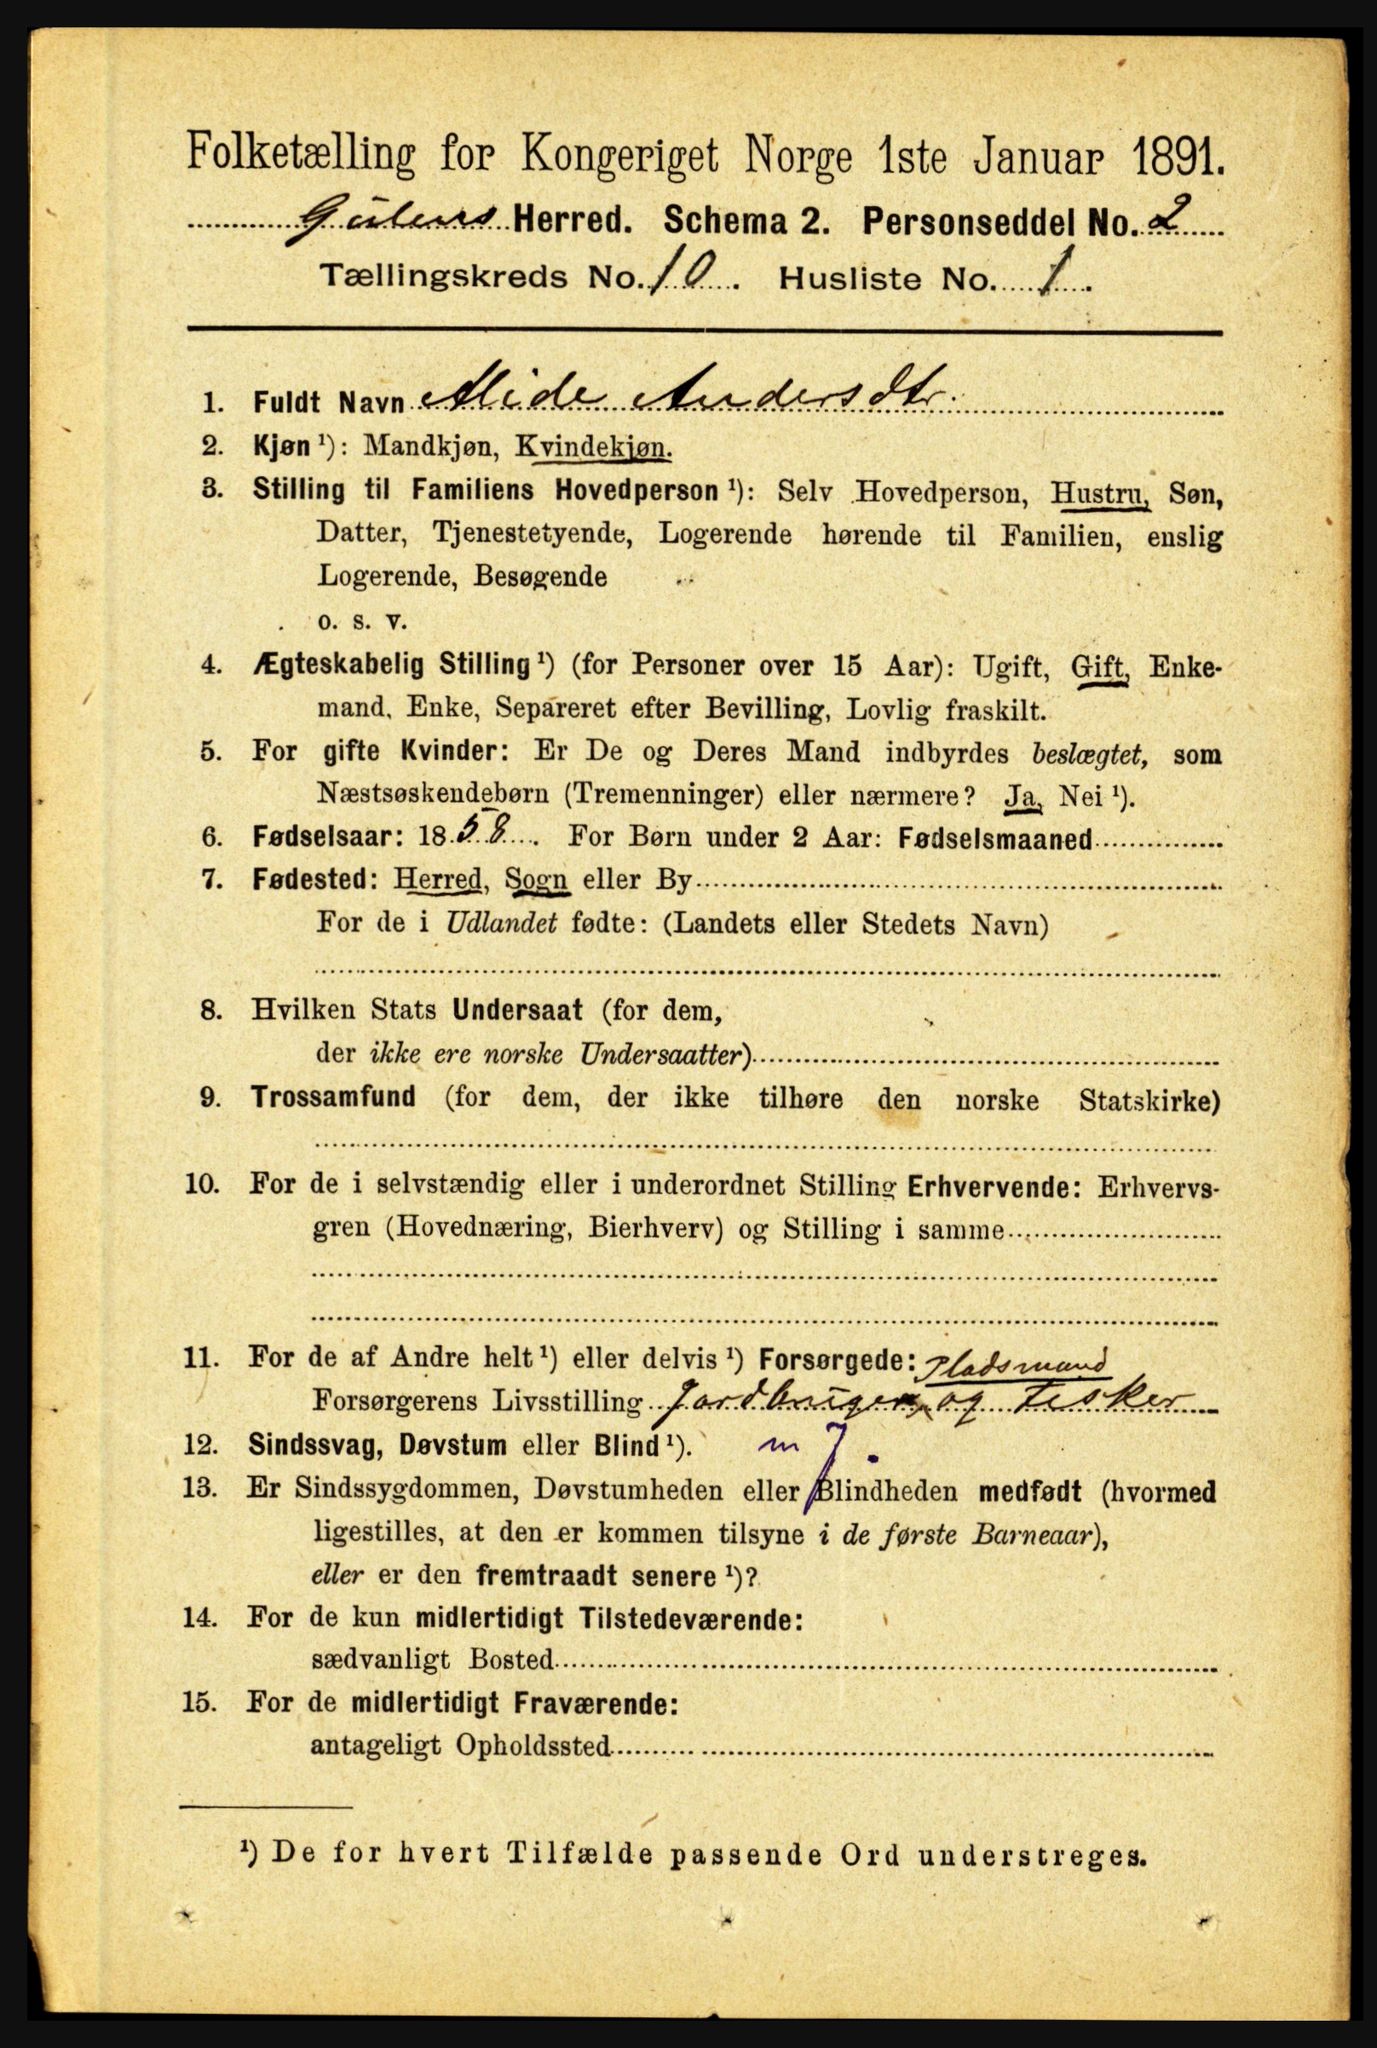 Folketælling for Kongeriget Norge 1ste Januar 1891.
Gulens Herred. Schema 2. Personseddel No. 2
Tællingskreds No. 10. Husliste No. 1.
1. Fuldt Navn Alide Andersdtr.
2. Kjøn ¹): Mandkjøn, Kvindekjøn.
3. Stilling til Familiens Hovedperson ¹): Selv Hovedperson, Hustru, Søn,
Datter, Tjenestetyende, Logerende hørende til Familien, enslig
Logerende, Besøgende
o. s. v.
4. Ægteskabelig Stilling ¹) (for Personer over 15 Aar): Ugift, Gift, Enke-
mand, Enke, Separeret efter Bevilling, Lovlig fraskilt.
5. For gifte Kvinder: Er De og Deres Mand indbyrdes beslægtet, som
Næstsøskendebørn (Tremenninger) eller nærmere? Ja, Nei ¹).
6. Fødselsaar: 1858. For Børn under 2 Aar: Fødselsmaaned
7. Fødested: Herred, Sogn eller By
For de i Udlandet fødte: (Landets eller Stedets Navn)
8. Hvilken Stats Undersaat (for dem,
der ikke ere norske Undersaatter)
9. Trossamfund (for dem, der ikke tilhøre den norske Statskirke)
10. For de i selvstændig eller i underordnet Stilling Erhvervende: Erhvervs-
gren (Hovednæring, Bierhverv) og Stilling i samme
11. For de af Andre helt ¹) eller delvis ¹) Forsørgede: Pladsmand
Forsørgerens Livsstilling Jordbruger og Fisker
12. Sindssvag, Døvstum eller Blind ¹). m J.
13. Er Sindssygdommen, Døvstumheden eller Blindheden medfødt (hvormed
ligestilles, at den er kommen tilsyne i de første Barneaar),
eller er den fremtraadt senere ¹)?
14. For de kun midlertidigt Tilstedeværende:
sædvanligt Bosted
15. For de midlertidigt Fraværende:
antageligt Opholdssted
¹) De for hvert Tilfælde passende Ord understreges.